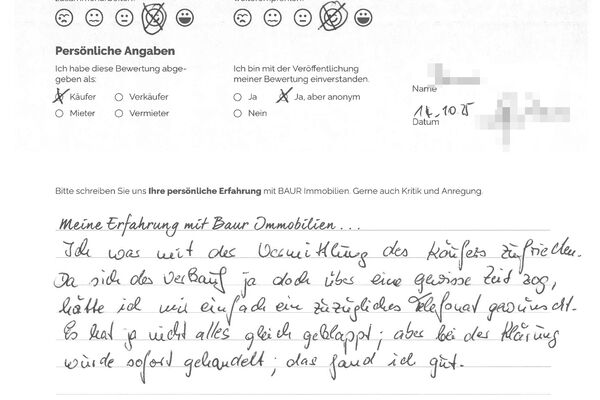 Persönliche Angaben
Ich habe diese Bewertung abge-
geben als:
Käufer
Verkäufer
Mieter
Vermieter
Ich bin mit der Veröffentlichung
meiner Bewertung einverstanden.
Ja
Ja, aber anonym
Nein
Name
14.10.25
Datum
Bitte schreiben Sie uns Ihre persönliche Erfahrung mit BAUR Immobilien. Gerne auch Kritik und Anregung.
Meine Erfahrung mit Baur Immobilien...
Ich war mit der Vermittlung des Käufers zufrieden.
Da sich der Verkauf ja doch über eine gewisse Zeit zog,
hätte ich mir einfach ein zuzügliches Telefonat gewünscht.
Es hat ja nicht alles gleich geklappt; aber bei der Klärung
wurde sofort gehandelt; das fand ich gut.